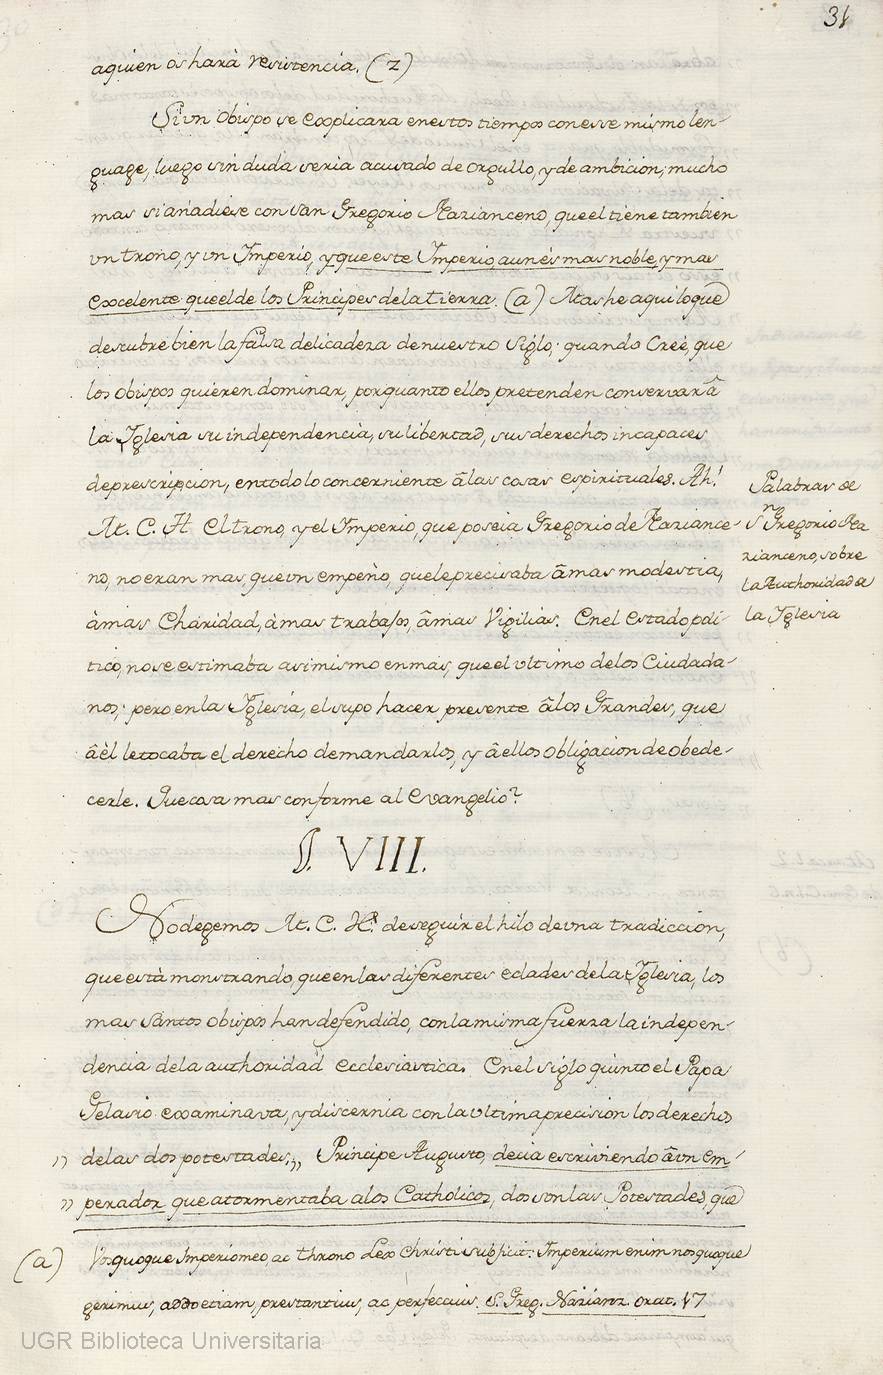 31
aquien os harà resistencia. (z)
Si un Obispo se explicara en estos tiempos con esse mismo len-
guage, luego sin duda seria acusado de orgullo, y de ambicion; mucho
mas si añadiese con San Gregorio Nazianceno, que el tiene tambien
un trono, y un Imperio, y que este Imperio aun és mas noble, y mas
excelente que el de los Principes de la tierra. (a) Mas he aqui lo que
descubre bien la falsa delicadeza de nuestro Siglo; quando Creè, que
los Obispos quieren dominar, por quanto ellos pretenden conservar â
la Iglesia su independencia, su libertad, sus derechos incapaces
de prescripcion, en todo lo concerniente â las cosas espirituales. Ah!
M. C. H. El trono, y el Imperio, que poseia Gregorio de Naziance-
no, no eran mas, que un empeño, que le precisaba â mas modestia,
à mas Charidad, à mas trabajos, â mas Vigilias. En el Estado poli-
tico, no se estimaba asimismo en mas, que el ultimo de los Ciudada-
nos; pero en la Iglesia, el supo hacer presente â los Grandes, que
â èl le tocaba el derecho de mandarlos, y â ellos obligacion de obede-
cerle. Que cosa mas conforme al Evangelio?
Palabras de
Sn Gregorio Na
zianceno, sobre
la Authoridad de
la Iglesia
§. VIII.
No degemos M. C. Hs. de seguir el hilo de una tradiccion,
que està monstrando, que en las diferentes edades de la Iglesia, los
mas Santos Obispos han defendido, con la misma fuerza la indepen-
dencia de la authoridad Ecclesiastica. En el siglo quinto el Papa
Gelasio examinava, y discernia con la ultima precision los derechos
" de las dos potestades. " Principe Augusto, decia escriviendo â un Em-
" perador que atormentaba a los Catholicos, dos son las Potestades, que
(a) Vos quoque Imperio meo, ac throno Lex Christi subjicit: Imperium enim nos quoque
gerimus, addo etiam, prestantius, ac perfeccius. S. Greg. Nazianz. orat. 17
UGR Biblioteca Universitaria